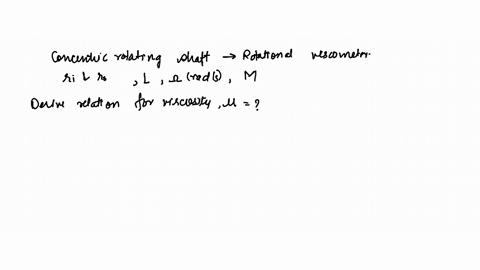 Concentric rotating shaft → Rotational viscometer.
ri & ro , L , Ω (rad/s) , M
Derive relation for viscosity , μ = ?